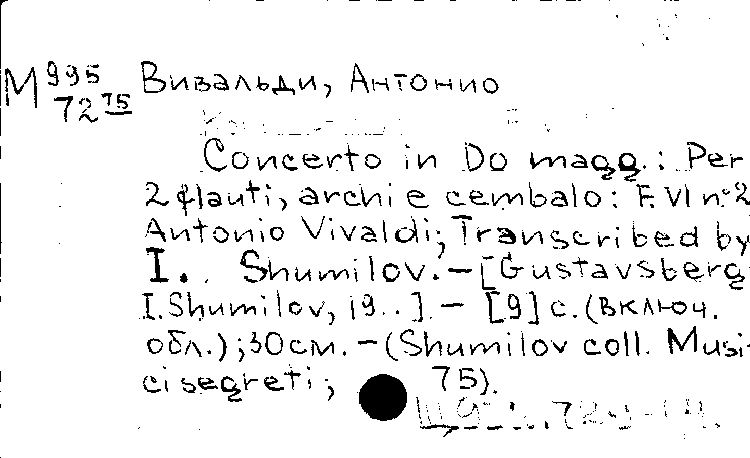 М 995 Вивальди, Антонио
72 75
Concerto in Do magg.: Per
2 flauti, archi e cembalo: F. VI n° 2
Antonio Vivaldi; Transcribed by
I. Shumilov. – [Gustavsberg
I. Shumilov, 19..]. – [9] с. (включ.
обл.); 30 см. – (Shumilov coll. Musi-
ci segreti; 75).